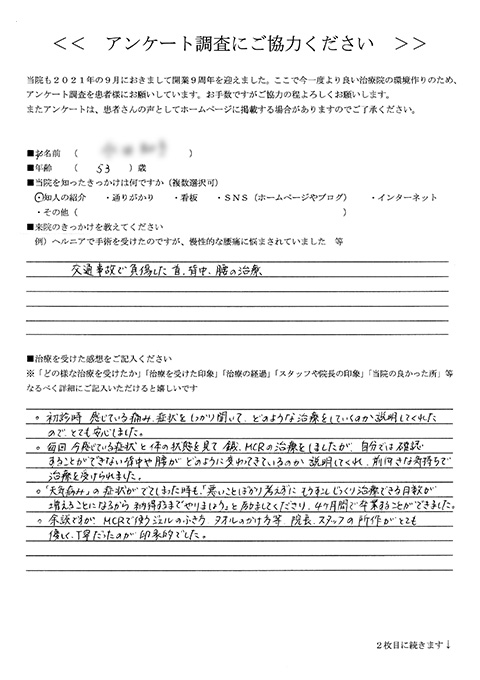 << アンケート調査にご協力ください >>
当院も2021年の9月におきまして開業9周年を迎えました。ここで今一度より良い治療院の環境作りのため、
アンケート調査を患者様にお願いしています。お手数ですがご協力の程よろしくお願いします。
またアンケートは、患者さんの声としてホームページに掲載する場合がありますのでご了承ください。
■お名前 ( )
■年齢 ( 53 )歳
■当院を知ったきっかけは何ですか(複数選択可)
・知人の紹介 ・通りがかり ・看板 ・SNS(ホームページやブログ) ・インターネット
・その他( )
■来院のきっかけを教えてください
例)ヘルニアで手術を受けたのですが、慢性的な腰痛に悩まされていました 等
交通事故で負傷した首、背中、腰の治療
■治療を受けた感想をご記入ください
※「どの様な治療を受けたか」「治療を受けた印象」「治療の経過」「スタッフや院長の印象」「当院の良かった所」等
なるべく詳細にご記入いただけると嬉しいです
。初診時 感じている痛み、症状をしっかり聞いて、どのような治療をしていくのか説明してくれた
ので、とても安心しました。
。毎回 今感じている症状と体の状態を見て 鍼、MCRの治療をしましたが、自分では確認
することができない背中や腰が どのように変わってきているのか 説明してくれ、前向きな気持ちで
治療を受けられました。
。「天気痛み」の症状がでてしまった時も、「悪いことばかり考えずに もう少しじっくり治療できる日数が
増えることになるから 納得するまでやりましょう」と励ましてくださり、4ヶ月間で卒業することができました。
。余談ですが、MCRで使うジェルのふき方、タオルのかけ方等、院長、スタッフの所作がとても
優しく、丁寧だったのが印象的でした。
2枚目に続きます↓